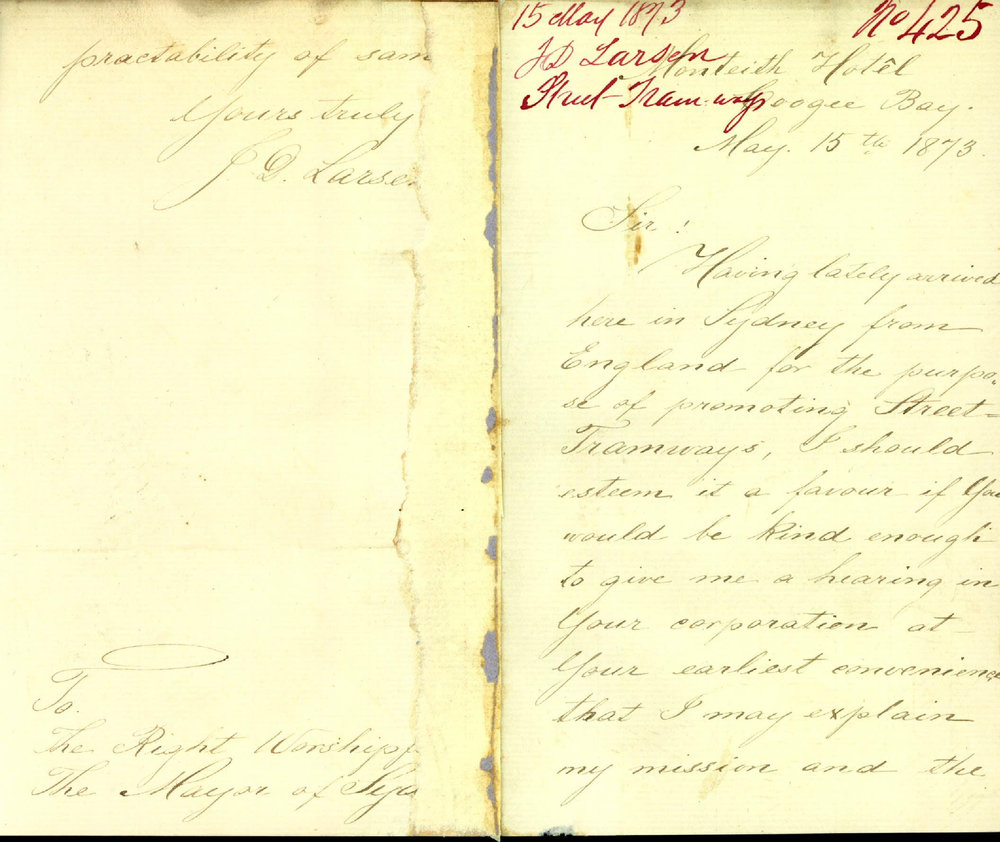 15 May 1873 No 425
JD Larsen
Street-Tramways
Monteith Hotêl
Coogee Bay.
May. 15th 1873.
Sir!
Having lately arrived
here in Sydney from
England for the purpo-
se of promoting Street=
Tramways, I should
esteem it a favour if You
would be kind enough
to give me a hearing in
Your corporation at
Your earliest convenience
that I may explain
my mission and the
practability of sam
Yours truly
J. D. Larsen
To.
The Right Worshipf
The Mayor of Syd